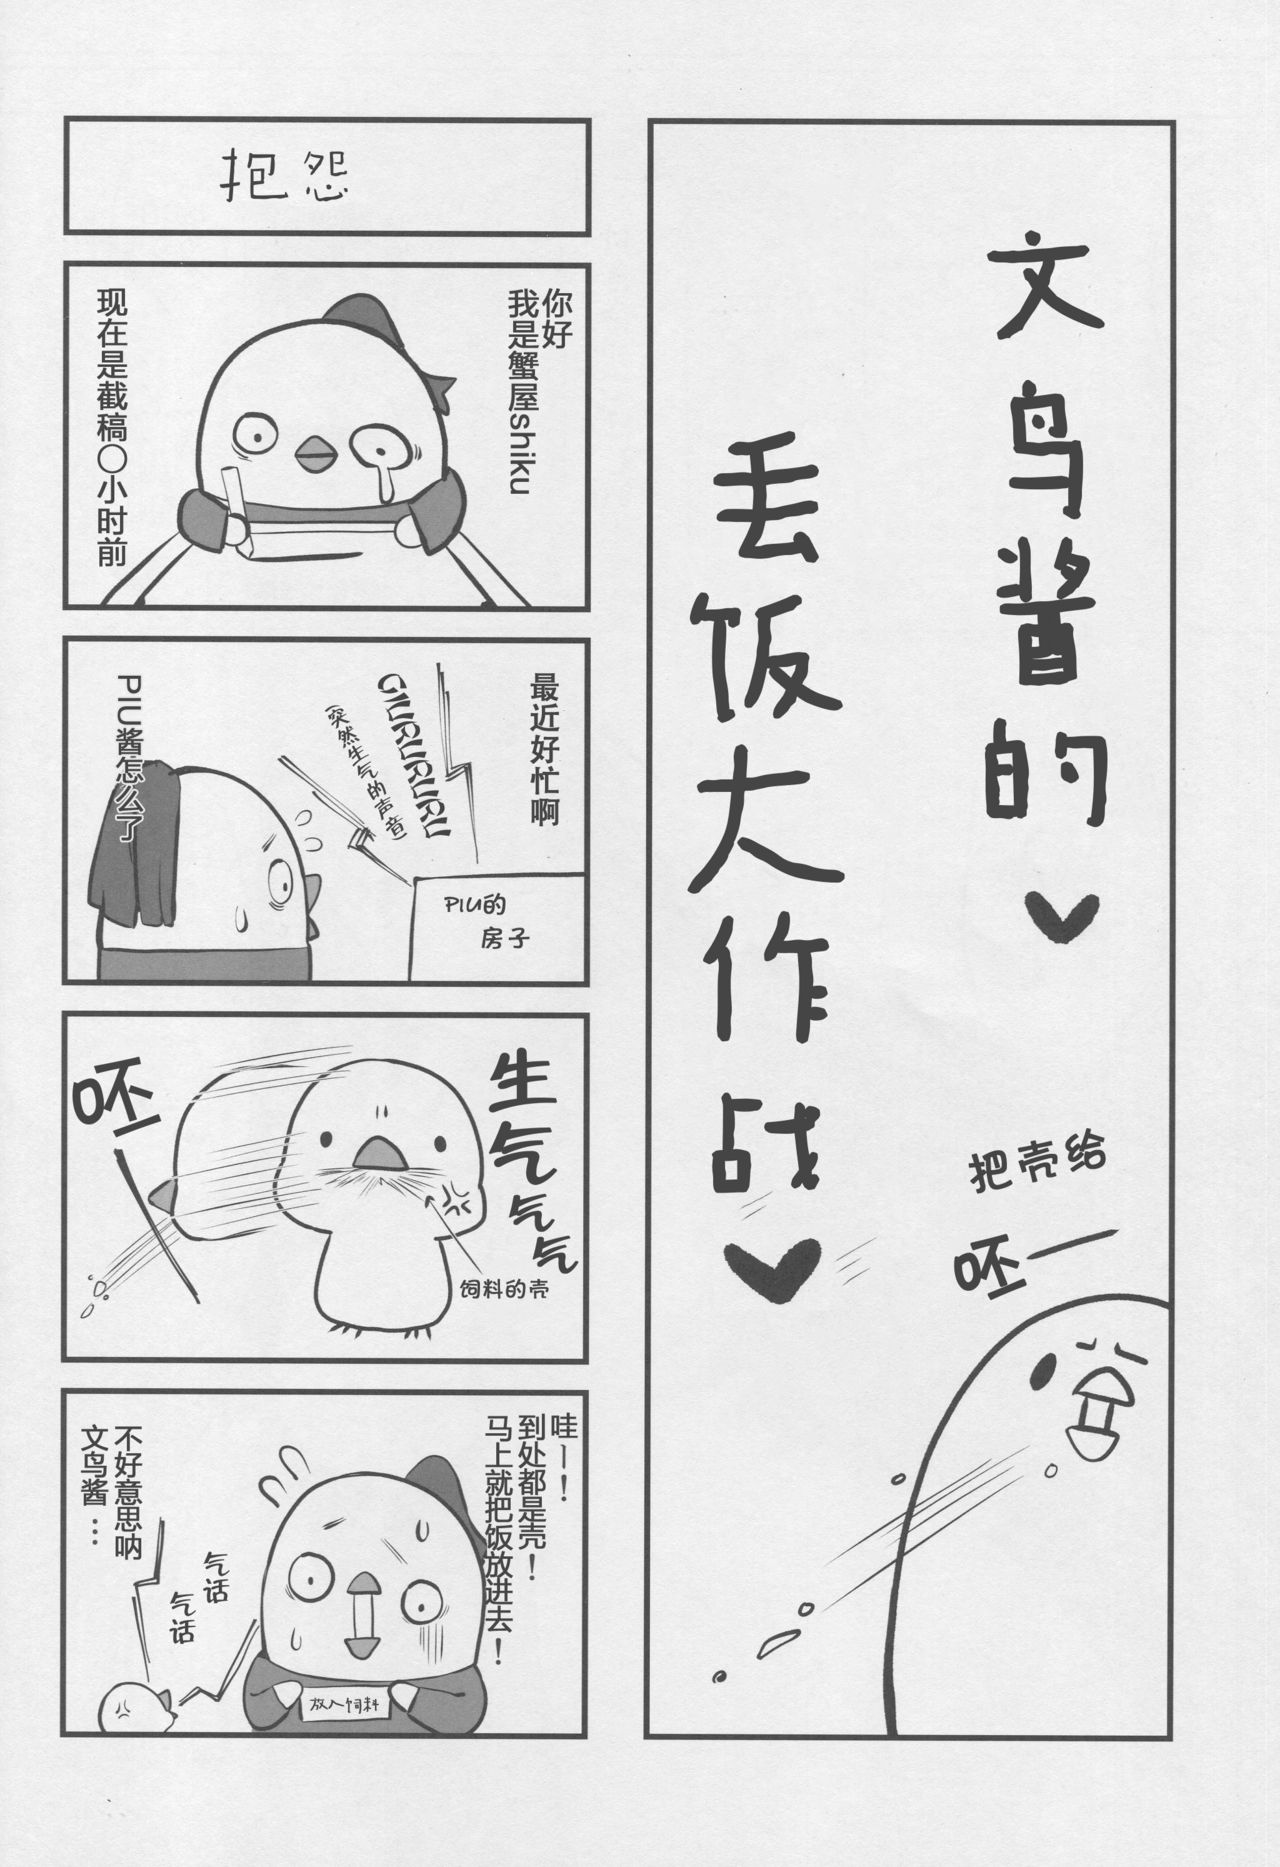 文鸟酱的♥
丢饭大作战♥
把壳给
呸一
抱怨
你好
我是蟹屋shiku
现在是截稿〇小时前
最近好忙啊
GIURURURURU
(突然生气的声音)
PIU的
房子
PIU酱怎么了
生气气气
饲料的壳
呸一
哇ー！
到处都是壳！
马上就把饭放进去！
放入饲料
气话
气话
不好意思呐
文鸟酱…